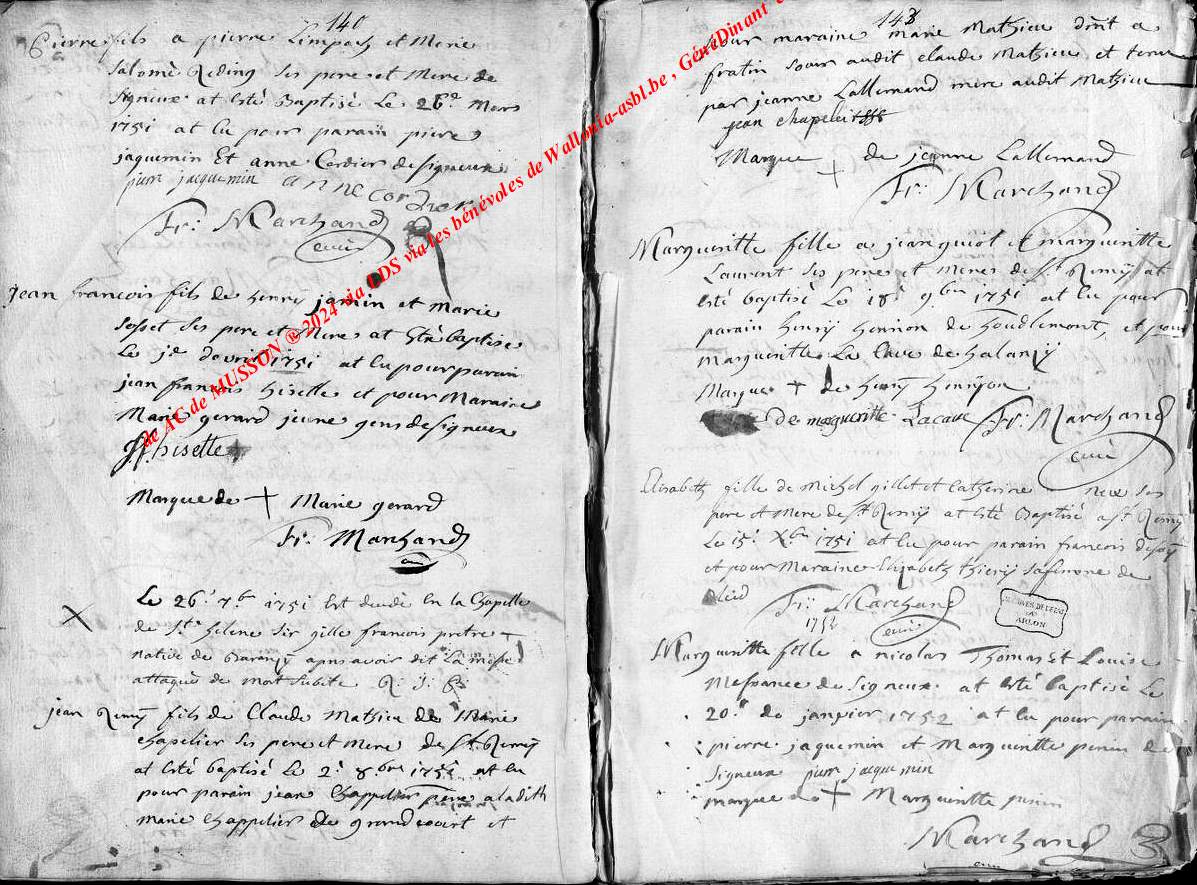 140
Pierre fils a pierre Limpach et Marie
Salomé Reding ses pere et Mere de
Signeux at esté Baptisé Le 26e Mars
1751 at eu pour parain pierre
jaquemin Et anne Cordier de signeux
pierr jacquemin anne cordier
Fr: Marchand
curé
jean francois fils de henry jamin et marie
sosset ses pere et Mere at esté baptise
Le je d'avril 1751 at eu pour parain
jean francois hisette et pour Maraine
Marie gerard jeune gens de signeux
hisette
Marque de + Marie gerard
Fr: Marchand
curé
Le 26e 7bre 1751 Est decedé en la Chapelle
de Ste helene Sir gille francois pretre
native de Baranzy apres avoir dit La messe
attaque de mort subite R: J: P:
jean Remy fils de Claude Mathieu de Marie
chapelier ses pere et mere de St Remy
at esté baptisé Le 2e 8bre 1751 at eu
pour parain jean Chappelier pere a ladith
marie Chappelier de grandcourt et
143
pour maraine marie Mathieu dont a
fratin soeur audit claude Mathieu et tenu
par jeanne Lallemand mere audit Mathieu
jean chapeleit
Marque + de jeanne Lallemand
Fr: Marchand
Margueritte fille a jean guiot et margueritte
Laurent ses pere et meres de St Remy at
esté baptisé Le 18e 9bre 1751 at eu pour
parain henry henrion de houdlemont, et pour
margueritte La cave de halanzy
Marque + de henry henryon
de margueritte Lacave Fr: Marchand
curé
Elisabeth fille de Michel gillet et catherine neve ses
pere et Mere de St Remy at esté Baptisé a St Remy
Le 15e Xbre 1751 at eu pour parain francois
et pour Maraine Elizabeth thiery sa femme de
Fr: Marchand
1752 curé
ARCHIVES DE L'ETAT
ARLON
Margueritte fille a nicolas Thomas Et Louise
Mefrance de Signeux at esté baptisé Le
20e de janvier 1752 at eu pour parain
pierre jaquemin et Margueritte perin de
Signeux pierr jacquemin
marque de + Margueritte perin
Marchand
curé
de AC de MUSSON ® 2024 via LDS via les bénévoles de Wallonia-asbl.be , GénéDinant